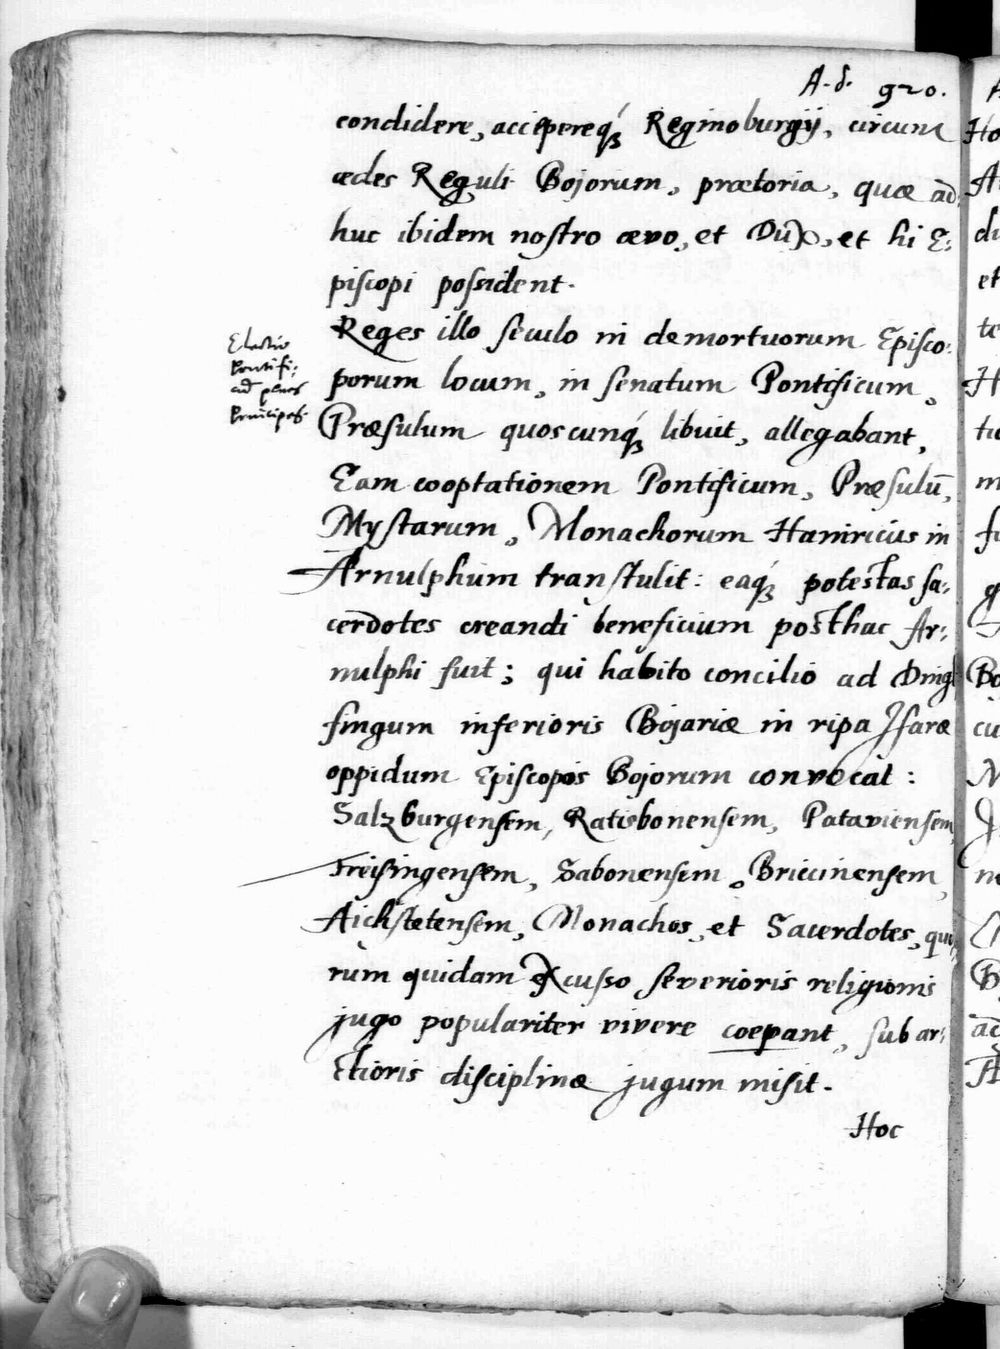 A. d. 920.
condidere, accepereq́ꝫ Reginoburgÿ, circum
ædes Reguli Bojorum, prætoria, quæ ad-
huc ibidem nostro ævo, et Dux, et hi E-
piscopi possident.
Reges illo seculo in demortuorum Episco-
porum locum, in senatum Pontificum,
Præsulum quoscunq́ꝫ libuit, allegabant,
Eam cooptationem Pontificum, Præsulū,
Mystarum, Monachorum Hainricus in
Arnulphum transtulit: eaq́ꝫ potestas sa-
cerdotes creandi beneficium posthac Ar-
nulphi fuit; qui habito concilio ad Dingl
fingum inferioris Bojariæ in ripa Isaræ
oppidum Episcopos Bojorum convocat:
Salzburgensem, Ratisbonensem, Pataviensem,
Freisingensem, Sabonensem, Brixinensem,
Aichstetensem, Monachos, et Sacerdotes, quo-
rum quidam excusso severioris religionis
jugo populariter vivere coepant, sub ar-
ctioris disciplinæ jugum misit.
Hoc
Electio
Pontifi-
cū penes
Principes.
Ho
di
et
te
H
tu
m
Bo
cu
M
ne
B
ad